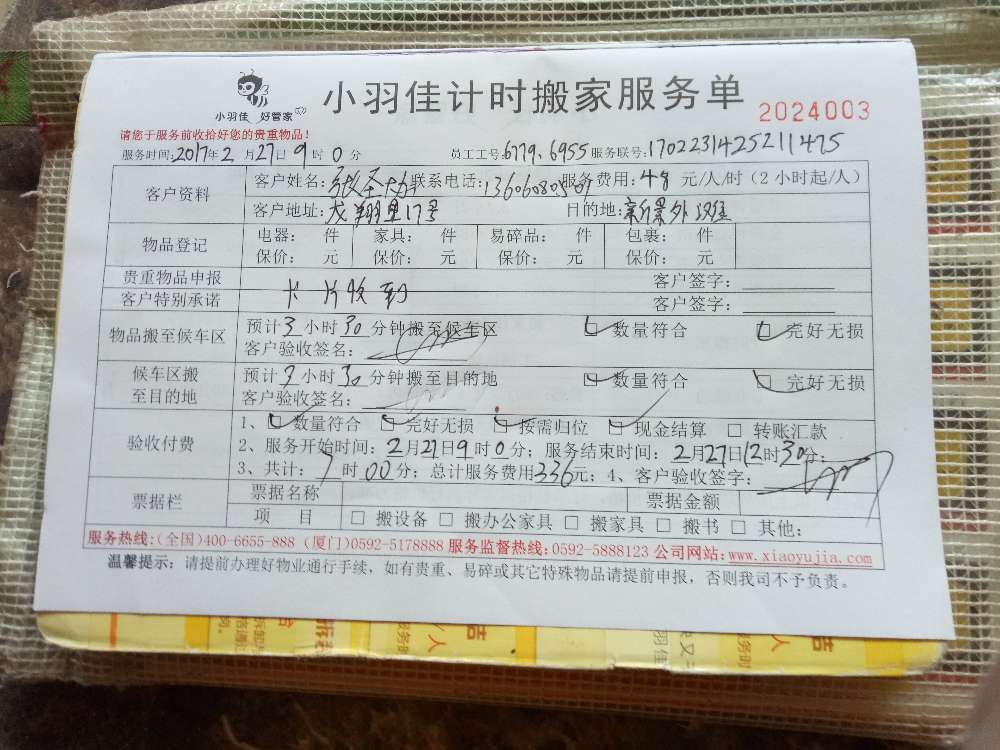 小羽佳 好管家
小羽佳计时搬家服务单
2024003
请您于服务前收拾好您的贵重物品!
服务时间:2017年2月27日9时0分 员工工号:6779、6955 服务联号:1702231425211475
客户资料
客户姓名: 联系电话: 服务费用:48元/人/时(2小时起/人)
客户地址:龙翔里17号 目的地:新景外滩
物品登记
电器: 件 家具: 件 易碎品: 件 包裹: 件
保价: 元 保价: 元 保价: 元 保价: 元
贵重物品申报 客户签字:
客户特别承诺 卡片收到 客户签字:
物品搬至候车区
预计3小时30分钟搬至候车区 数量符合 完好无损
客户验收签名:
候车区搬至目的地
预计3小时30分钟搬至目的地 数量符合 完好无损
客户验收签名:
验收付费
1、数量符合 完好无损 按需归位 现金结算 □ 转账汇款
2、服务开始时间:2月27日9时0分;服务结束时间:2月27日12时30分;
3、共计:7时00分;总计服务费用336元;4、客户验收签字:
票据栏
票据名称 票据金额
项 目 □ 搬设备 □ 搬办公家具 □ 搬家具 □ 搬书 □ 其他:
服务热线:(全国)400-6655-888 (厦门)0592-5178888 服务监督热线:0592-5888123 公司网站:www.xiaoyujia.com
温馨提示:请提前办理好物业通行手续,如有贵重、易碎或其它特殊物品请提前申报,否则我司不予负责。